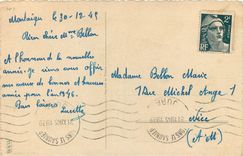 Montaigu le 30-12-45
Bien chère Mme Bellon
A l'occasion de la nouvelle
année je viens vous offrir
mes vœux de bonne et heureuse
année pour l'an 1946.
Bons baisers
Lucette
2F
RF
POSTES
Madame Bellon Marie
1 Rue Michel Ange 1
Nice
(A-M)